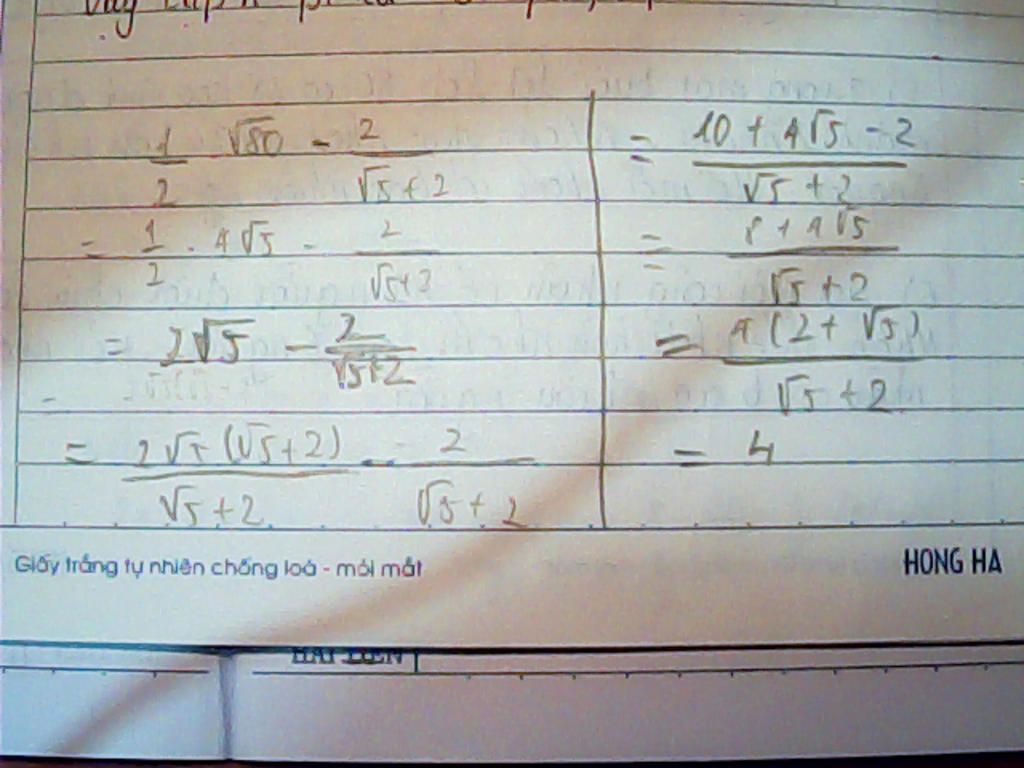 1/2 √80 - 2/(√5+2)
= 1/2 . 4√5 - 2/(√5+2)
= 2√5 - 2/(√5+2)
= 2√5(√5+2)/(√5+2) - 2/(√5+2)
= (10 + 4√5 - 2)/(√5+2)
= (8 + 4√5)/(√5+2)
= 4(2 + √5)/(√5+2)
= 4
Giấy trắng tự nhiên chống loá - mỏi mắt
HONG HA
HAI TIEN